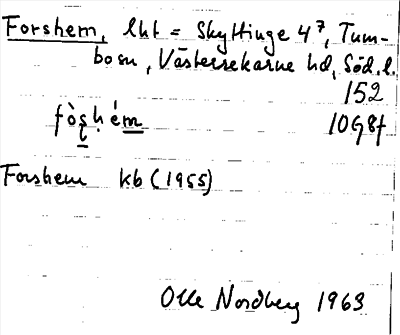 Forshem, lht = Skyttinge 4⁷, Tum-
bosn, Västerrekarne hd, Söd. l.
152
fòʂhém 10G8f
Forshem kb (1955)
Olle Nordberg 1963